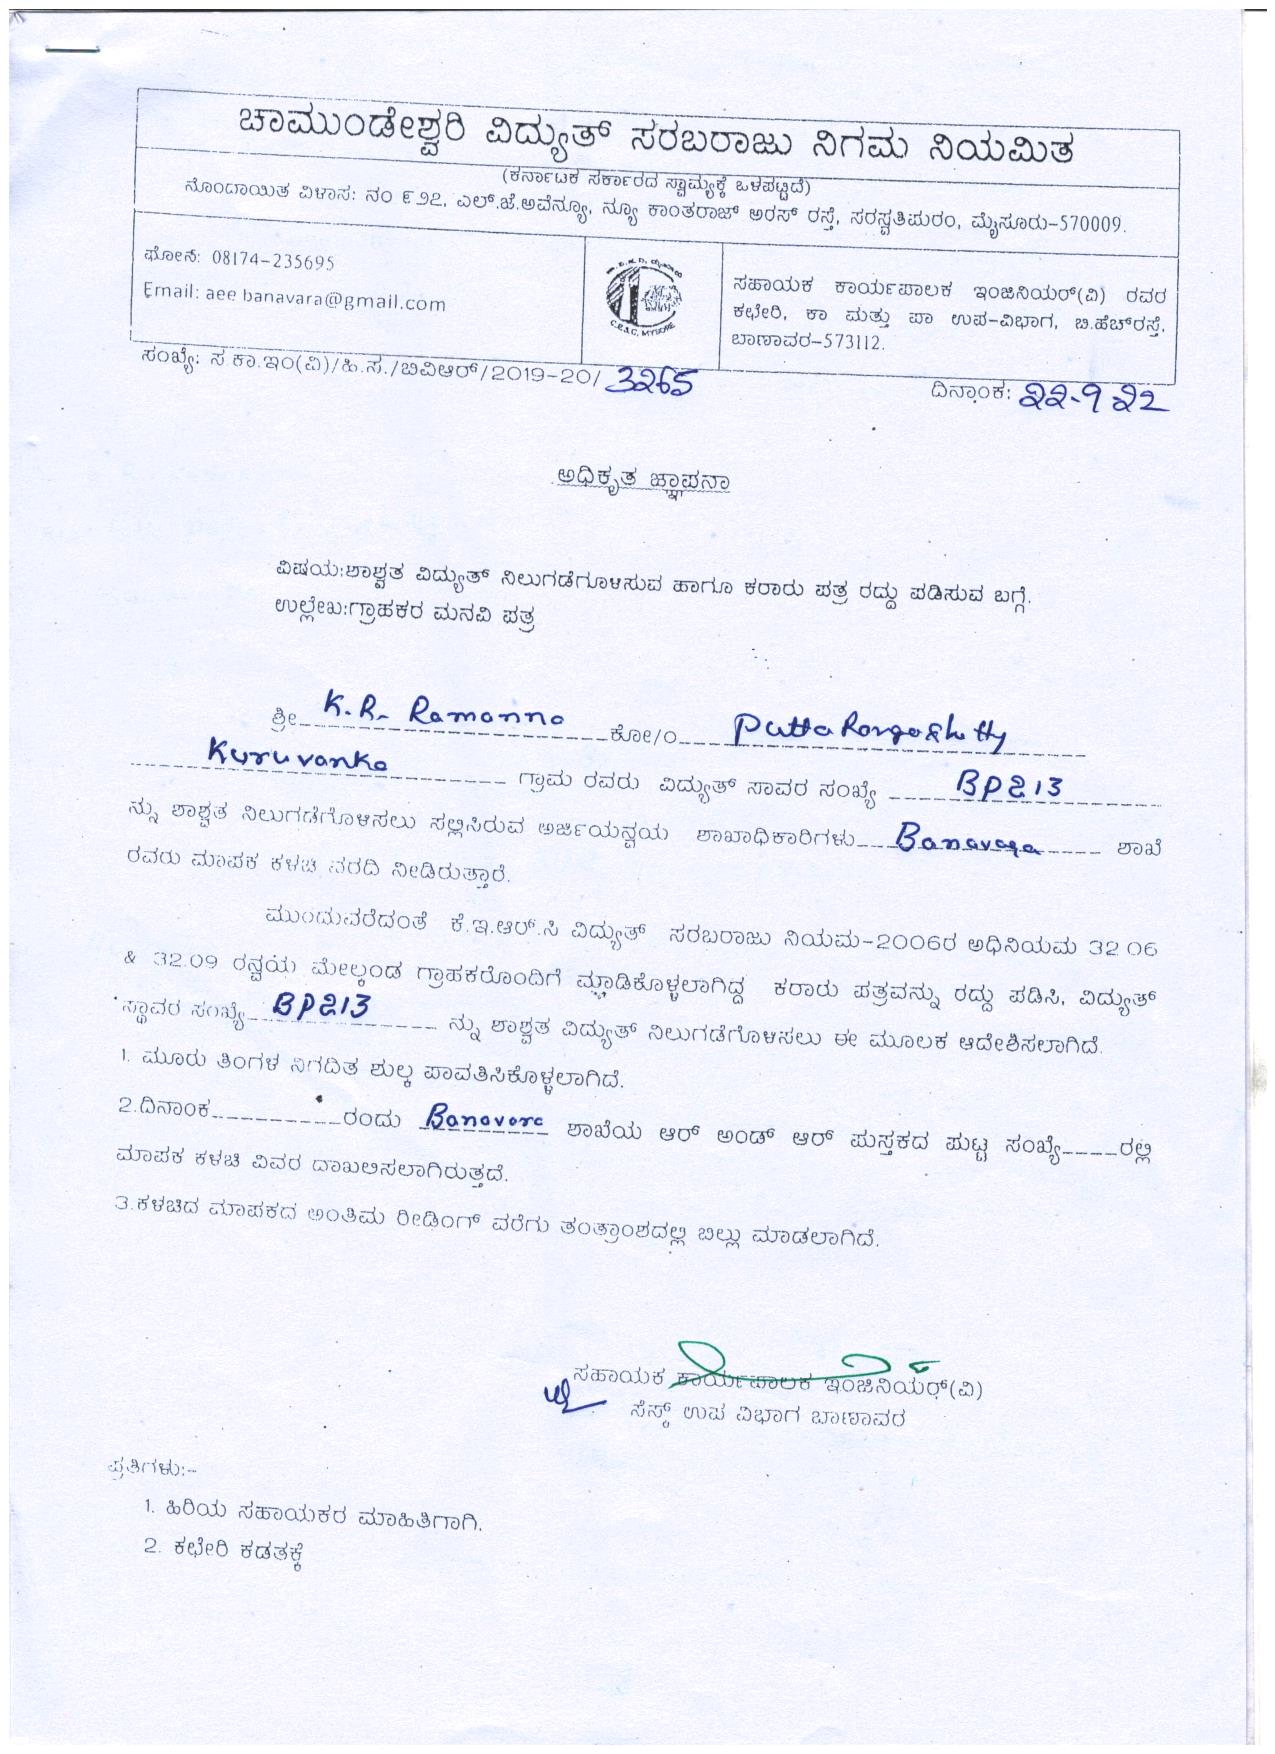 ಚಾಮುಂಡೇಶ್ವರಿ ವಿದ್ಯುತ್ ಸರಬರಾಜು ನಿಗಮ ನಿಯಮಿತ
(ಕರ್ನಾಟಕ ಸರ್ಕಾರದ ಸ್ವಾಮ್ಯಕ್ಕೆ ಒಳಪಟ್ಟಿದೆ)
ನೊಂದಾಯಿತ ವಿಳಾಸ: ನಂ ೯೨೨, ಎಲ್.ಜೆ.ಅವೆನ್ಯೂ, ನ್ಯೂ ಕಾಂತರಾಜ್ ಅರಸ್ ರಸ್ತೆ, ಸರಸ್ವತಿಪುರಂ, ಮೈಸೂರು-570009.
ಫೋನ್: 08174-235695
Email: aee banavara@gmail.com
C.E.S.C, MYSORE
ಸಹಾಯಕ ಕಾರ್ಯಪಾಲಕ ಇಂಜಿನಿಯರ್(ವಿ) ರವರ
ಕಛೇರಿ, ಕಾ ಮತ್ತು ಪಾ ಉಪ-ವಿಭಾಗ, ಬಿ.ಹೆಚ್ ರಸ್ತೆ,
ಬಾಣಾವರ-573112.
ಸಂಖ್ಯೆ: ಸ ಕಾ.ಇಂ(ವಿ)/ಹಿ.ಸ./ಬಿವಿಆರ್/2019-20/ 3265
ದಿನಾಂಕ: 22-9 22
ಅಧಿಕೃತ ಜ್ಞಾಪನಾ
ವಿಷಯ:ಶಾಶ್ವತ ವಿದ್ಯುತ್ ನಿಲುಗಡೆಗೊಳಿಸುವ ಹಾಗೂ ಕರಾರು ಪತ್ರ ರದ್ದು ಪಡಿಸುವ ಬಗ್ಗೆ.
ಉಲ್ಲೇಖ:ಗ್ರಾಹಕರ ಮನವಿ ಪತ್ರ
ಶ್ರೀ K.R. Ramanna ಕೋ/ಂ Putta Rangashetty
Kuruvanka ಗ್ರಾಮ ರವರು ವಿದ್ಯುತ್ ಸಾವರ ಸಂಖ್ಯೆ BP213
ನ್ನು ಶಾಶ್ವತ ನಿಲುಗಡೆಗೊಳಿಸಲು ಸಲ್ಲಿಸಿರುವ ಅರ್ಜಿಯನ್ವಯ ಶಾಖಾಧಿಕಾರಿಗಳು Banavara ಶಾಖೆ
ರವರು ಮಾಪಕ ಕಳಚಿ ವರದಿ ನೀಡಿರುತ್ತಾರೆ.
ಮುಂದುವರೆದಂತೆ ಕೆ.ಇ.ಆರ್.ಸಿ ವಿದ್ಯುತ್ ಸರಬರಾಜು ನಿಯಮ-2006ರ ಅಧಿನಿಯಮ 32.06
& 32.09 ರನ್ವಯ ಮೇಲ್ಕಂಡ ಗ್ರಾಹಕರೊಂದಿಗೆ ಮಾಡಿಕೊಳ್ಳಲಾಗಿದ್ದ ಕರಾರು ಪತ್ರವನ್ನು ರದ್ದು ಪಡಿಸಿ, ವಿದ್ಯುತ್
ಸ್ಥಾವರ ಸಂಖ್ಯೆ BP213 ನ್ನು ಶಾಶ್ವತ ವಿದ್ಯುತ್ ನಿಲುಗಡೆಗೊಳಿಸಲು ಈ ಮೂಲಕ ಆದೇಶಿಸಲಾಗಿದೆ.
1. ಮೂರು ತಿಂಗಳ ನಿಗದಿತ ಶುಲ್ಕ ಪಾವತಿಸಿಕೊಳ್ಳಲಾಗಿದೆ.
2.ದಿನಾಂಕ__________ರಂದು Banavara ಶಾಖೆಯ ಆರ್ ಅಂಡ್ ಆರ್ ಪುಸ್ತಕದ ಪುಟ್ಟ ಸಂಖ್ಯೆ____ರಲ್ಲಿ
ಮಾಪಕ ಕಳಚಿ ವಿವರ ದಾಖಲಿಸಲಾಗಿರುತ್ತದೆ.
3.ಕಳಚಿದ ಮಾಪಕದ ಅಂತಿಮ ರೀಡಿಂಗ್ ವರೆಗು ತಂತ್ರಾಂಶದಲ್ಲಿ ಬಿಲ್ಲು ಮಾಡಲಾಗಿದೆ.
ಸಹಾಯಕ ಕಾರ್ಯಪಾಲಕ ಇಂಜಿನಿಯರ್(ವಿ)
ಸೆಸ್ಕ್ ಉಪ ವಿಭಾಗ ಬಾಣಾವರ
ಪ್ರತಿಗಳು:-
1. ಹಿರಿಯ ಸಹಾಯಕರ ಮಾಹಿತಿಗಾಗಿ.
2. ಕಛೇರಿ ಕಡತಕ್ಕೆ